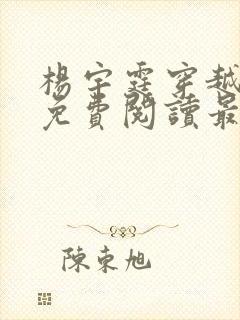 楊宇霆穿越
免費閱讀最
陳東旭